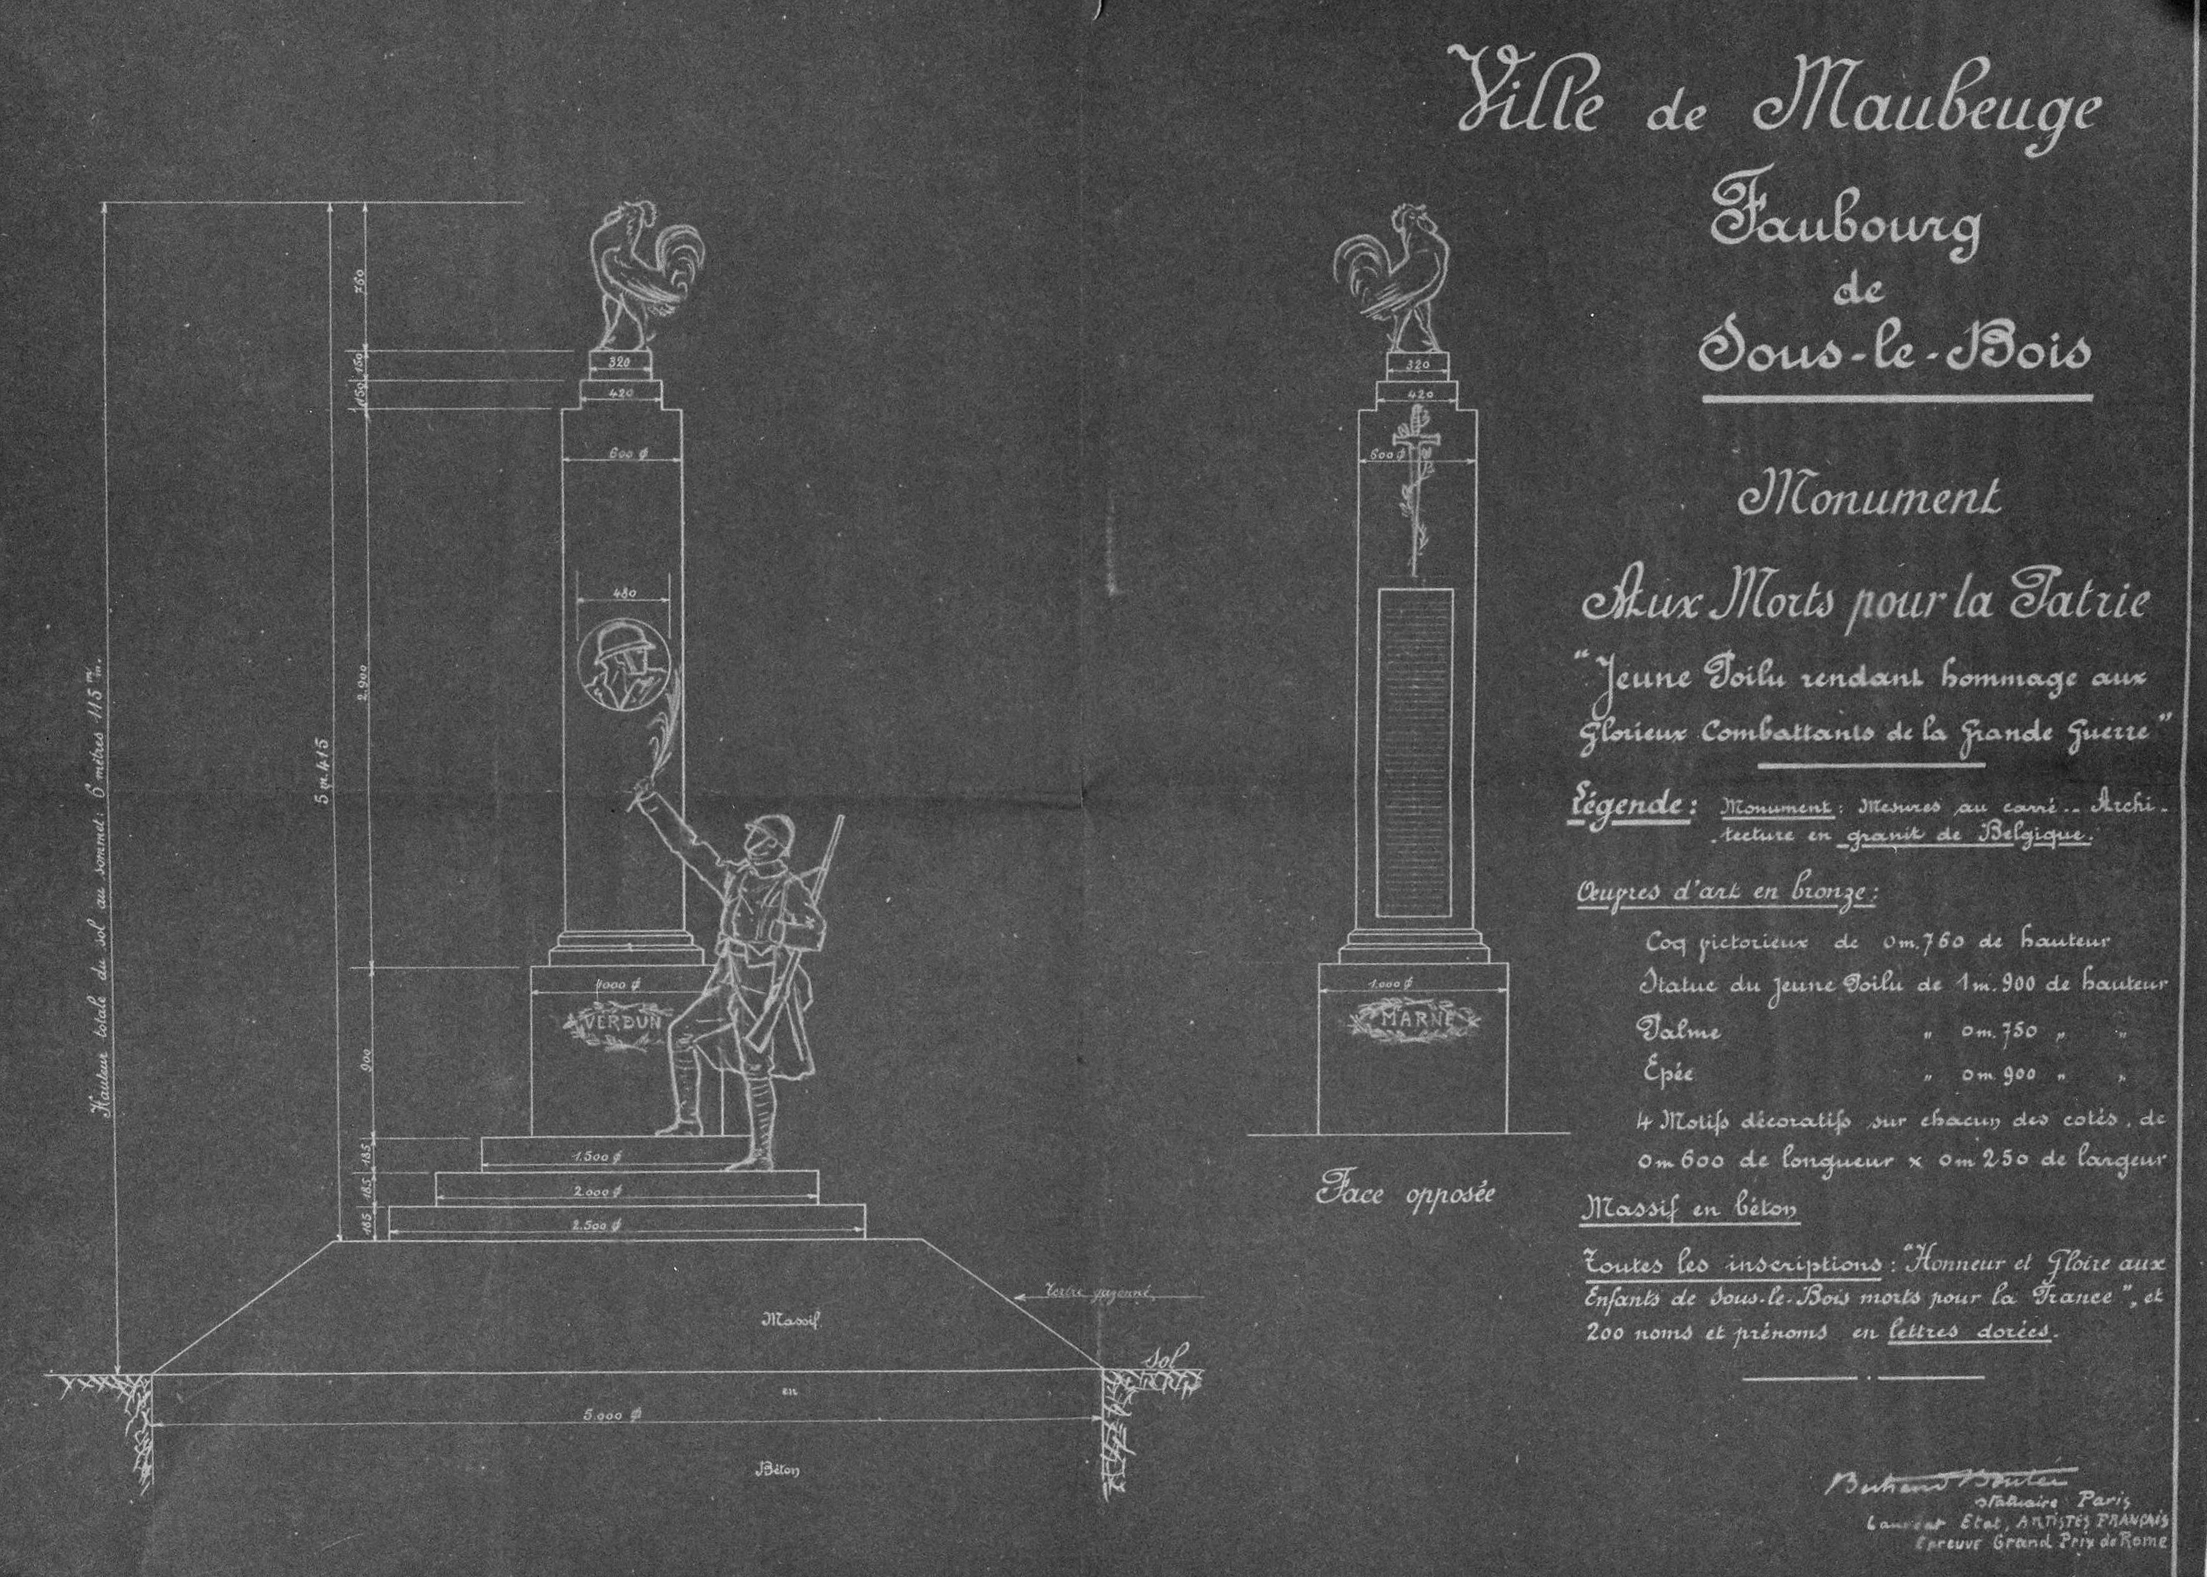 Ville de Maubeuge
Faubourg
de
Sous-le-Bois
Monument
Aux Morts pour la Patrie
"Jeune Poilu rendant hommage aux
Glorieux Combattants de la Grande Guerre"
Légende: Monument: Mesures au carré.- Archi-
-tecture en granit de Belgique.
Œuvres d'art en bronze:
Coq victorieux de 0m.760 de hauteur
Statue du jeune Poilu de 1m.900 de hauteur
Palme " 0m.750 " "
Epée " 0m.900 " "
4 Motifs décoratifs sur chacun des cotés, de
0m600 de longueur x 0m250 de largeur
Massif en béton
Toutes les inscriptions: "Honneur et Gloire aux
Enfants de Sous-le-Bois morts pour la France", et
200 noms et prénoms en lettres dorées.
statuaire Paris
Etat, ARTISTES FRANÇAIS
Epreuve Grand Prix de Rome
Hauteur totale du sol au sommet: 6 mètres 115 m/m.
5m.415
760
150
150
2.900
900
185
185
185
320
420
600 ϕ
480
1000 ϕ
VERDUN
1.500 ϕ
2.000 ϕ
2.500 ϕ
Tertre gazonné
Massif
Sol
en
5.000 ϕ
Béton
320
420
600 ϕ
1.000 ϕ
MARNE
Face opposée